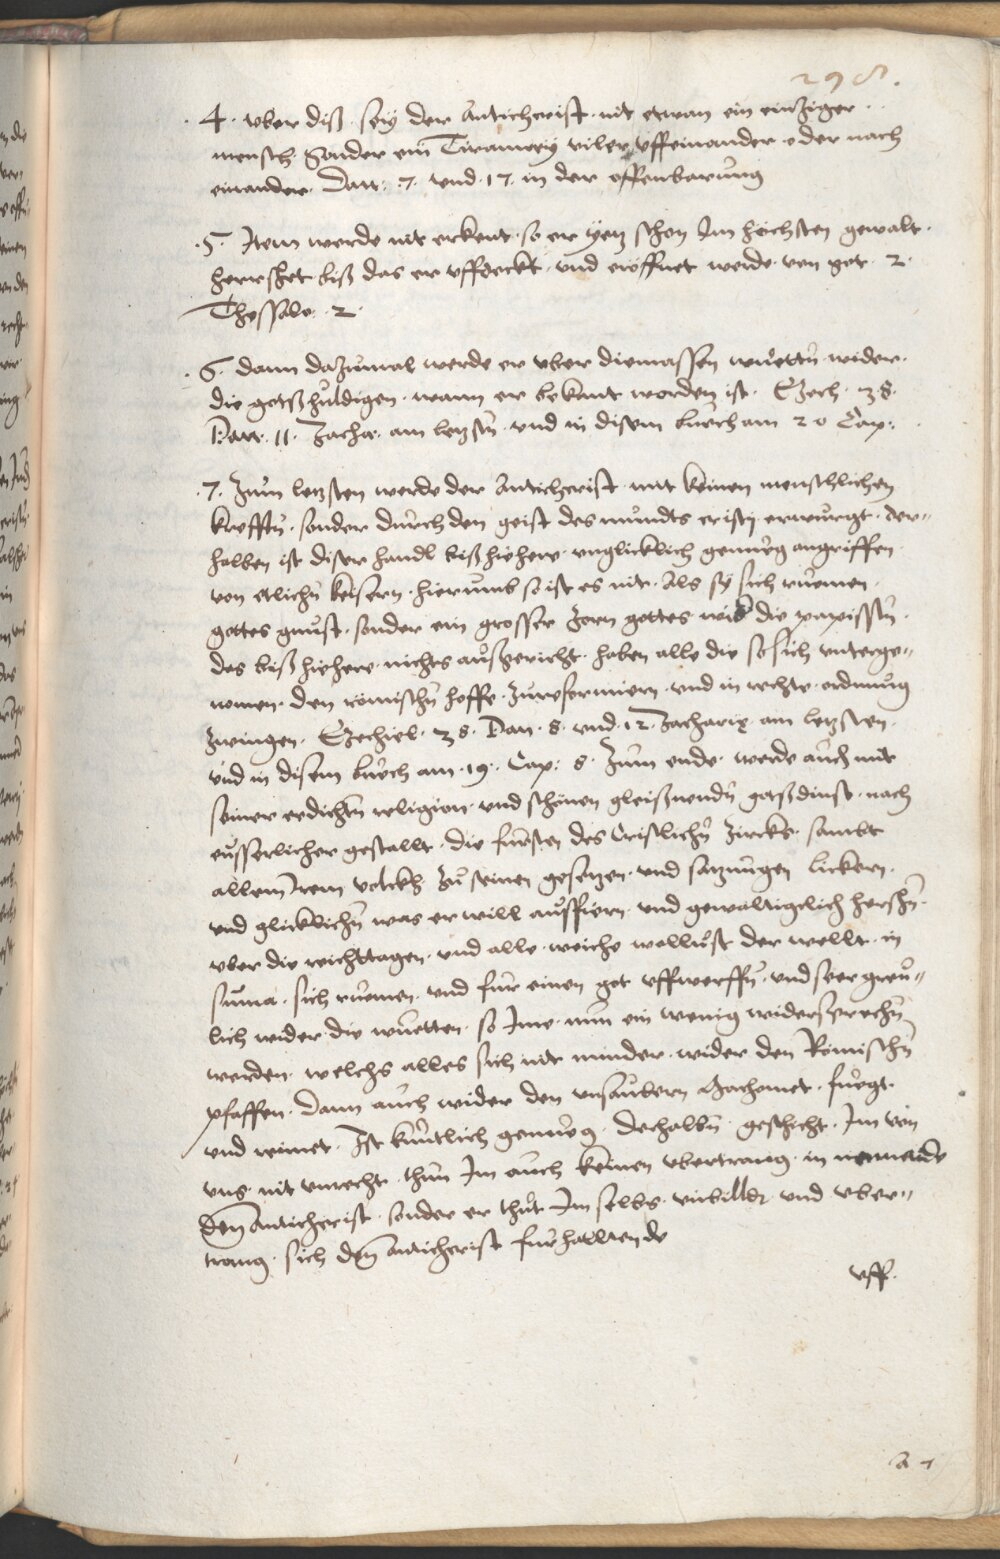 298.
4. vber diß sey der Antichrist nit etwan ein einziger
mensch Sonder ein Tiranney viler vffeinander oder nach
einander Dan: 7. vnd 17. in der offenbarung
5. Item werde nit erkent so er yetz schon Im höchsten gewalt
herrschet biß das er vffdeckt vnd eröffnet werde von got 2.
Thessalo: 2.
6. dann dazumal werde er vber diemassen wüettn wider
die gotshuldigen wann er bekant worden ist. Ezech. 38.
Dan. 11. Zachar. am letzstn vnd in disem buech am 20 Cap:
7. Zum letzsten werde der Antichrist mit keinen menschlichen
krefftn sonder durch den geist des mundts cristi erwurgt der„
halben ist diser handl bißhiehere vnglicklich genueg angriffen
von etlichn keisern hierumb so ist es nit Als sy sich ruemen
gottes gunst sonder ein grosser Zorn gottes wider die papisstn
das bißhiehere nichts außgericht haben alle die so sich vnterge„
nomen den römischn hoffe zureformiern vnd in rechte ordnung
zwingen. Ezechiel. 38. Dan. 8. vnd 12. Zacharię am letzsten
vnd in disem buech am 19. Cap: 8. Zum ende werde auch mit
seiner erdichtn religion vnd schönen gleißnendn gotsdinst nach
eusserlicher gestallt die fursten des Cristlichn Zircks sambt
allem Irem volckh zu seinen gesetzen vnd satzungen lickern
vnd glicklichn was er will außfiern vnd gewaltigelich hershn
vber die reichttagen vnd alle weiche wollust der wellt in
suma sich ruemen vnd fur einen got vffwerffn vnd seer greu„
lich wider die wüetten so Ime nun ein wenig widersprechn
werden welchs alles sich nit minder wider den Römischn
pfaffen Dann auch wider den vnsaubern Machomet fuegt
vnd reimet Ist kuntlich genueg dehalbn geschicht Im von
vns nit vnrecht thun Im auch keinen vbertrang in nennende
den Antichrist sonder er thut Im selbs vnbilldt vnd vber„
trang sich den Antichrist furhalltende
vff.